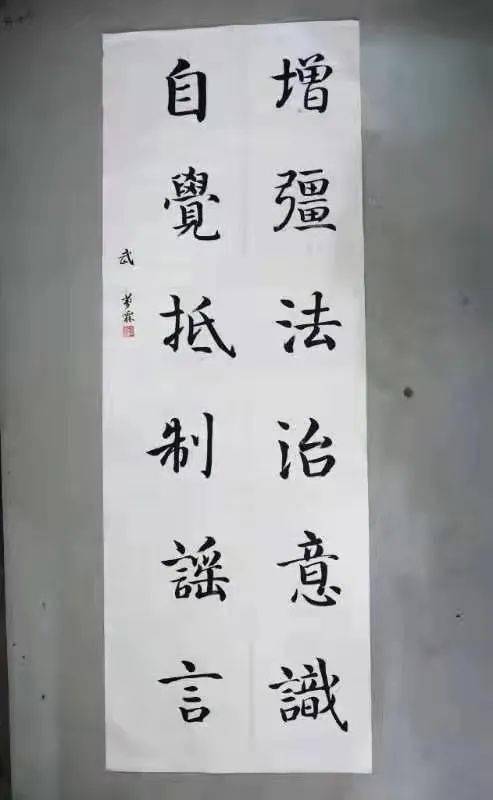 增彊法治意識
自覺抵制謡言
武